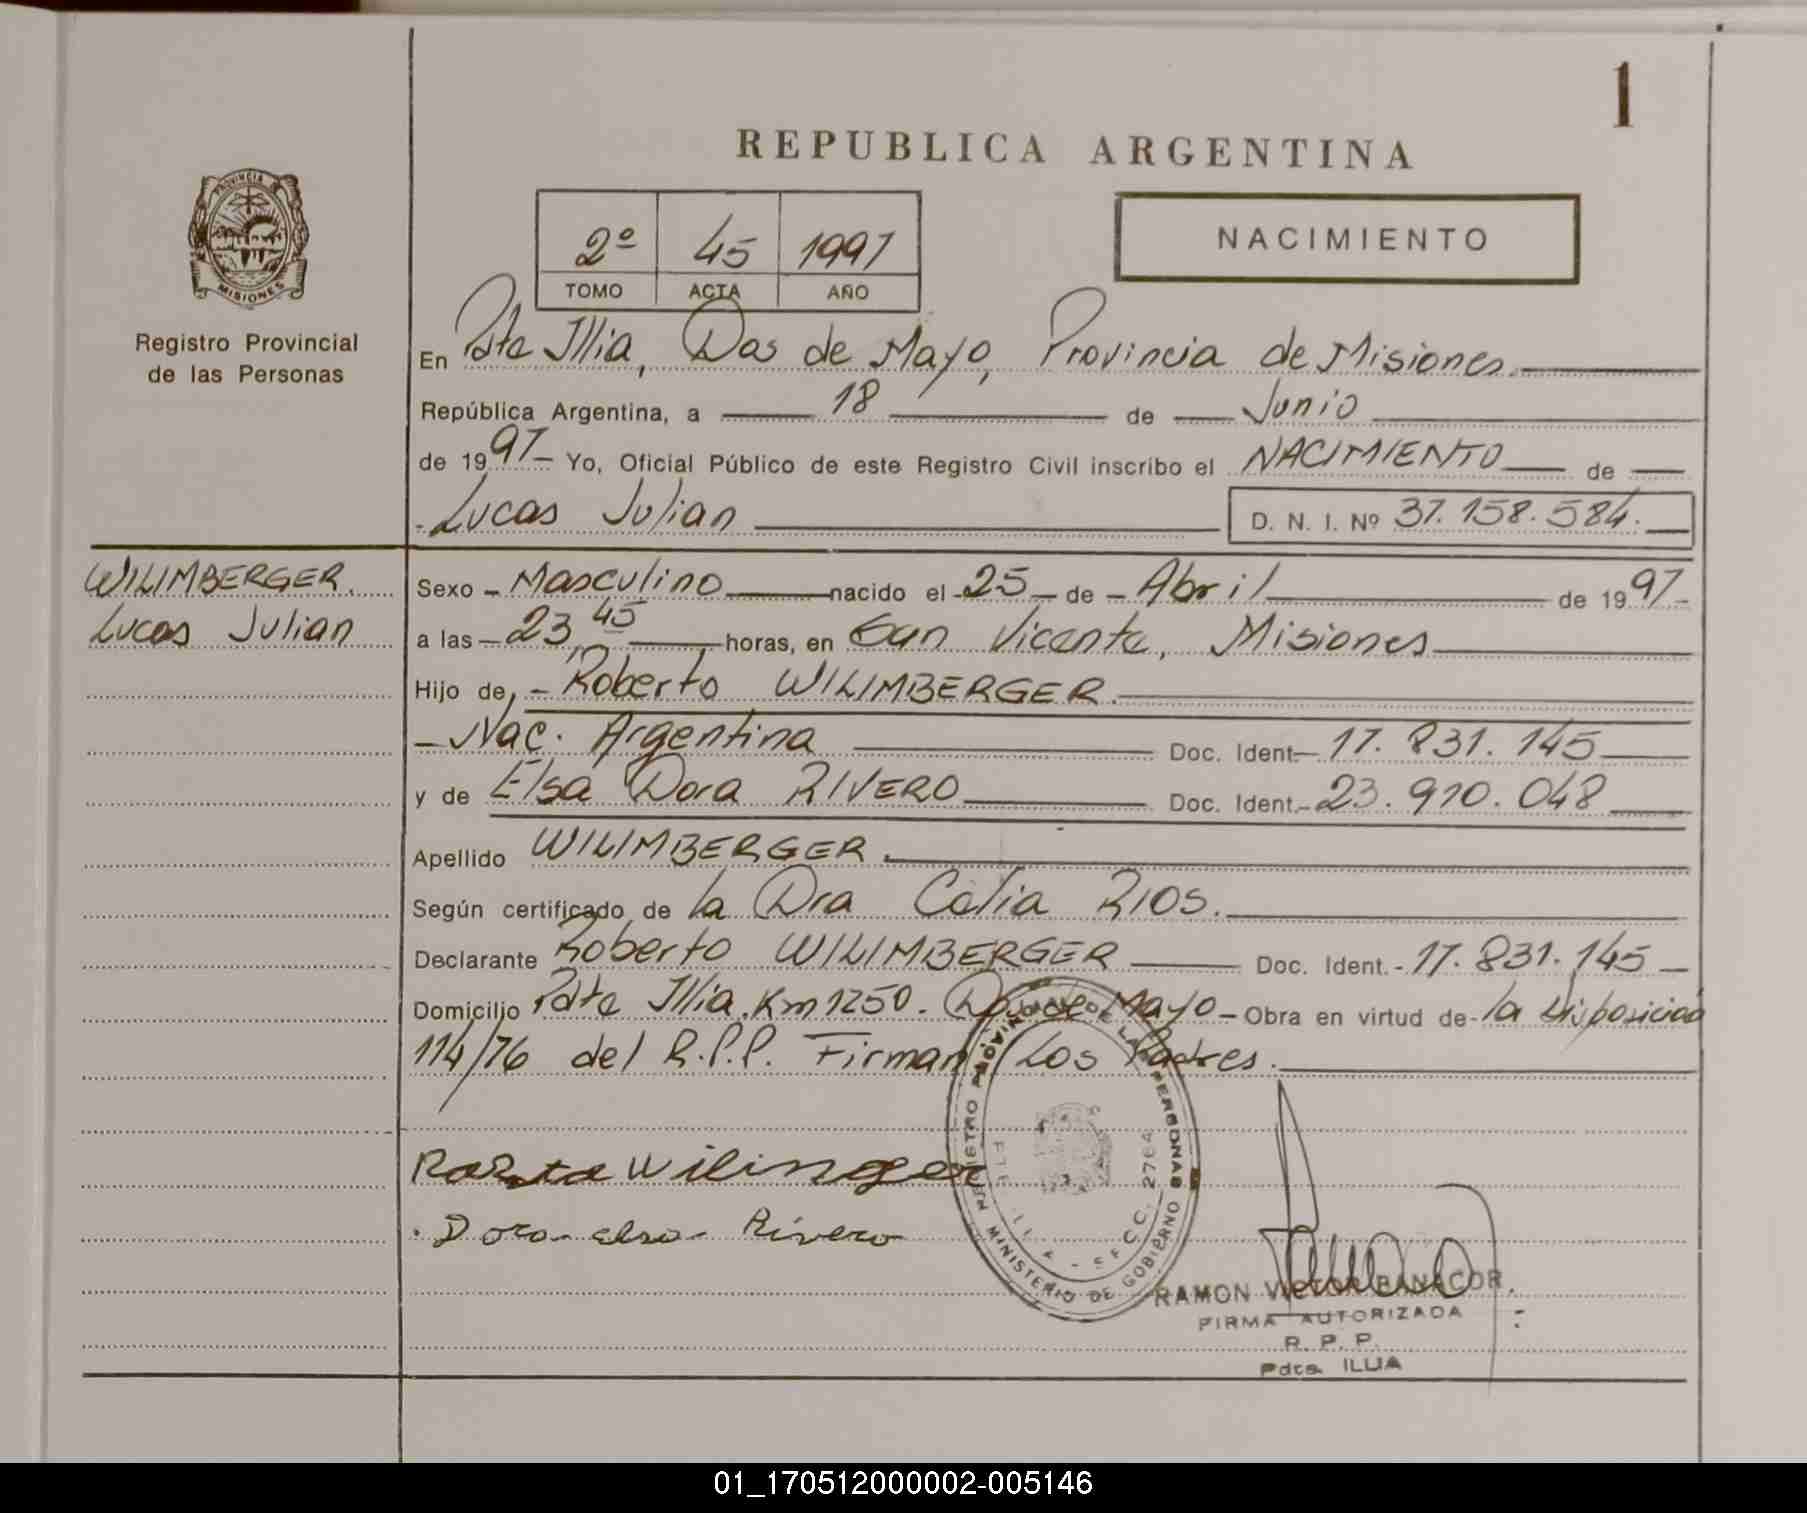 1
REPUBLICA ARGENTINA
PROVINCIA DE
MISIONES
Registro Provincial
de las Personas
2º 45 1997
TOMO ACTA AÑO
NACIMIENTO
En Pdte Illia, Dos de Mayo, Provincia de Misiones.
República Argentina, a 18 de Junio
de 1997 Yo, Oficial Público de este Registro Civil inscribo el NACIMIENTO de
Lucas Julian D. N. I. Nº 37.158.584.
WILIMBERGER.
Lucas Julian
Sexo - Masculino nacido el 25 de Abril de 1997
a las 23,45 horas, en San Vicente, Misiones
Hijo de, - Roberto WILIMBERGER.
- Nac. Argentina Doc. Ident. 17.831.145
y de Elsa Dora RIVERO Doc. Ident. 23.910.048
Apellido WILIMBERGER.
Según certificado de la Dra Celia RIOS.
Declarante Roberto WILIMBERGER Doc. Ident. - 17.831.145
Domicilio Pdte Illia. Km 1250. Dos de Mayo - Obra en virtud de - la disposición
114/76 del R.P.P. Firman Los Padres.
Dora elsa Rivero
REGISTRO PROVINCIAL DE LAS PERSONAS
MINISTERIO DE GOBIERNO
2764
RAMON VICTOR BANACOR
FIRMA AUTORIZADA
R. P. P.
Pdte. ILLIA
01_170512000002-005146